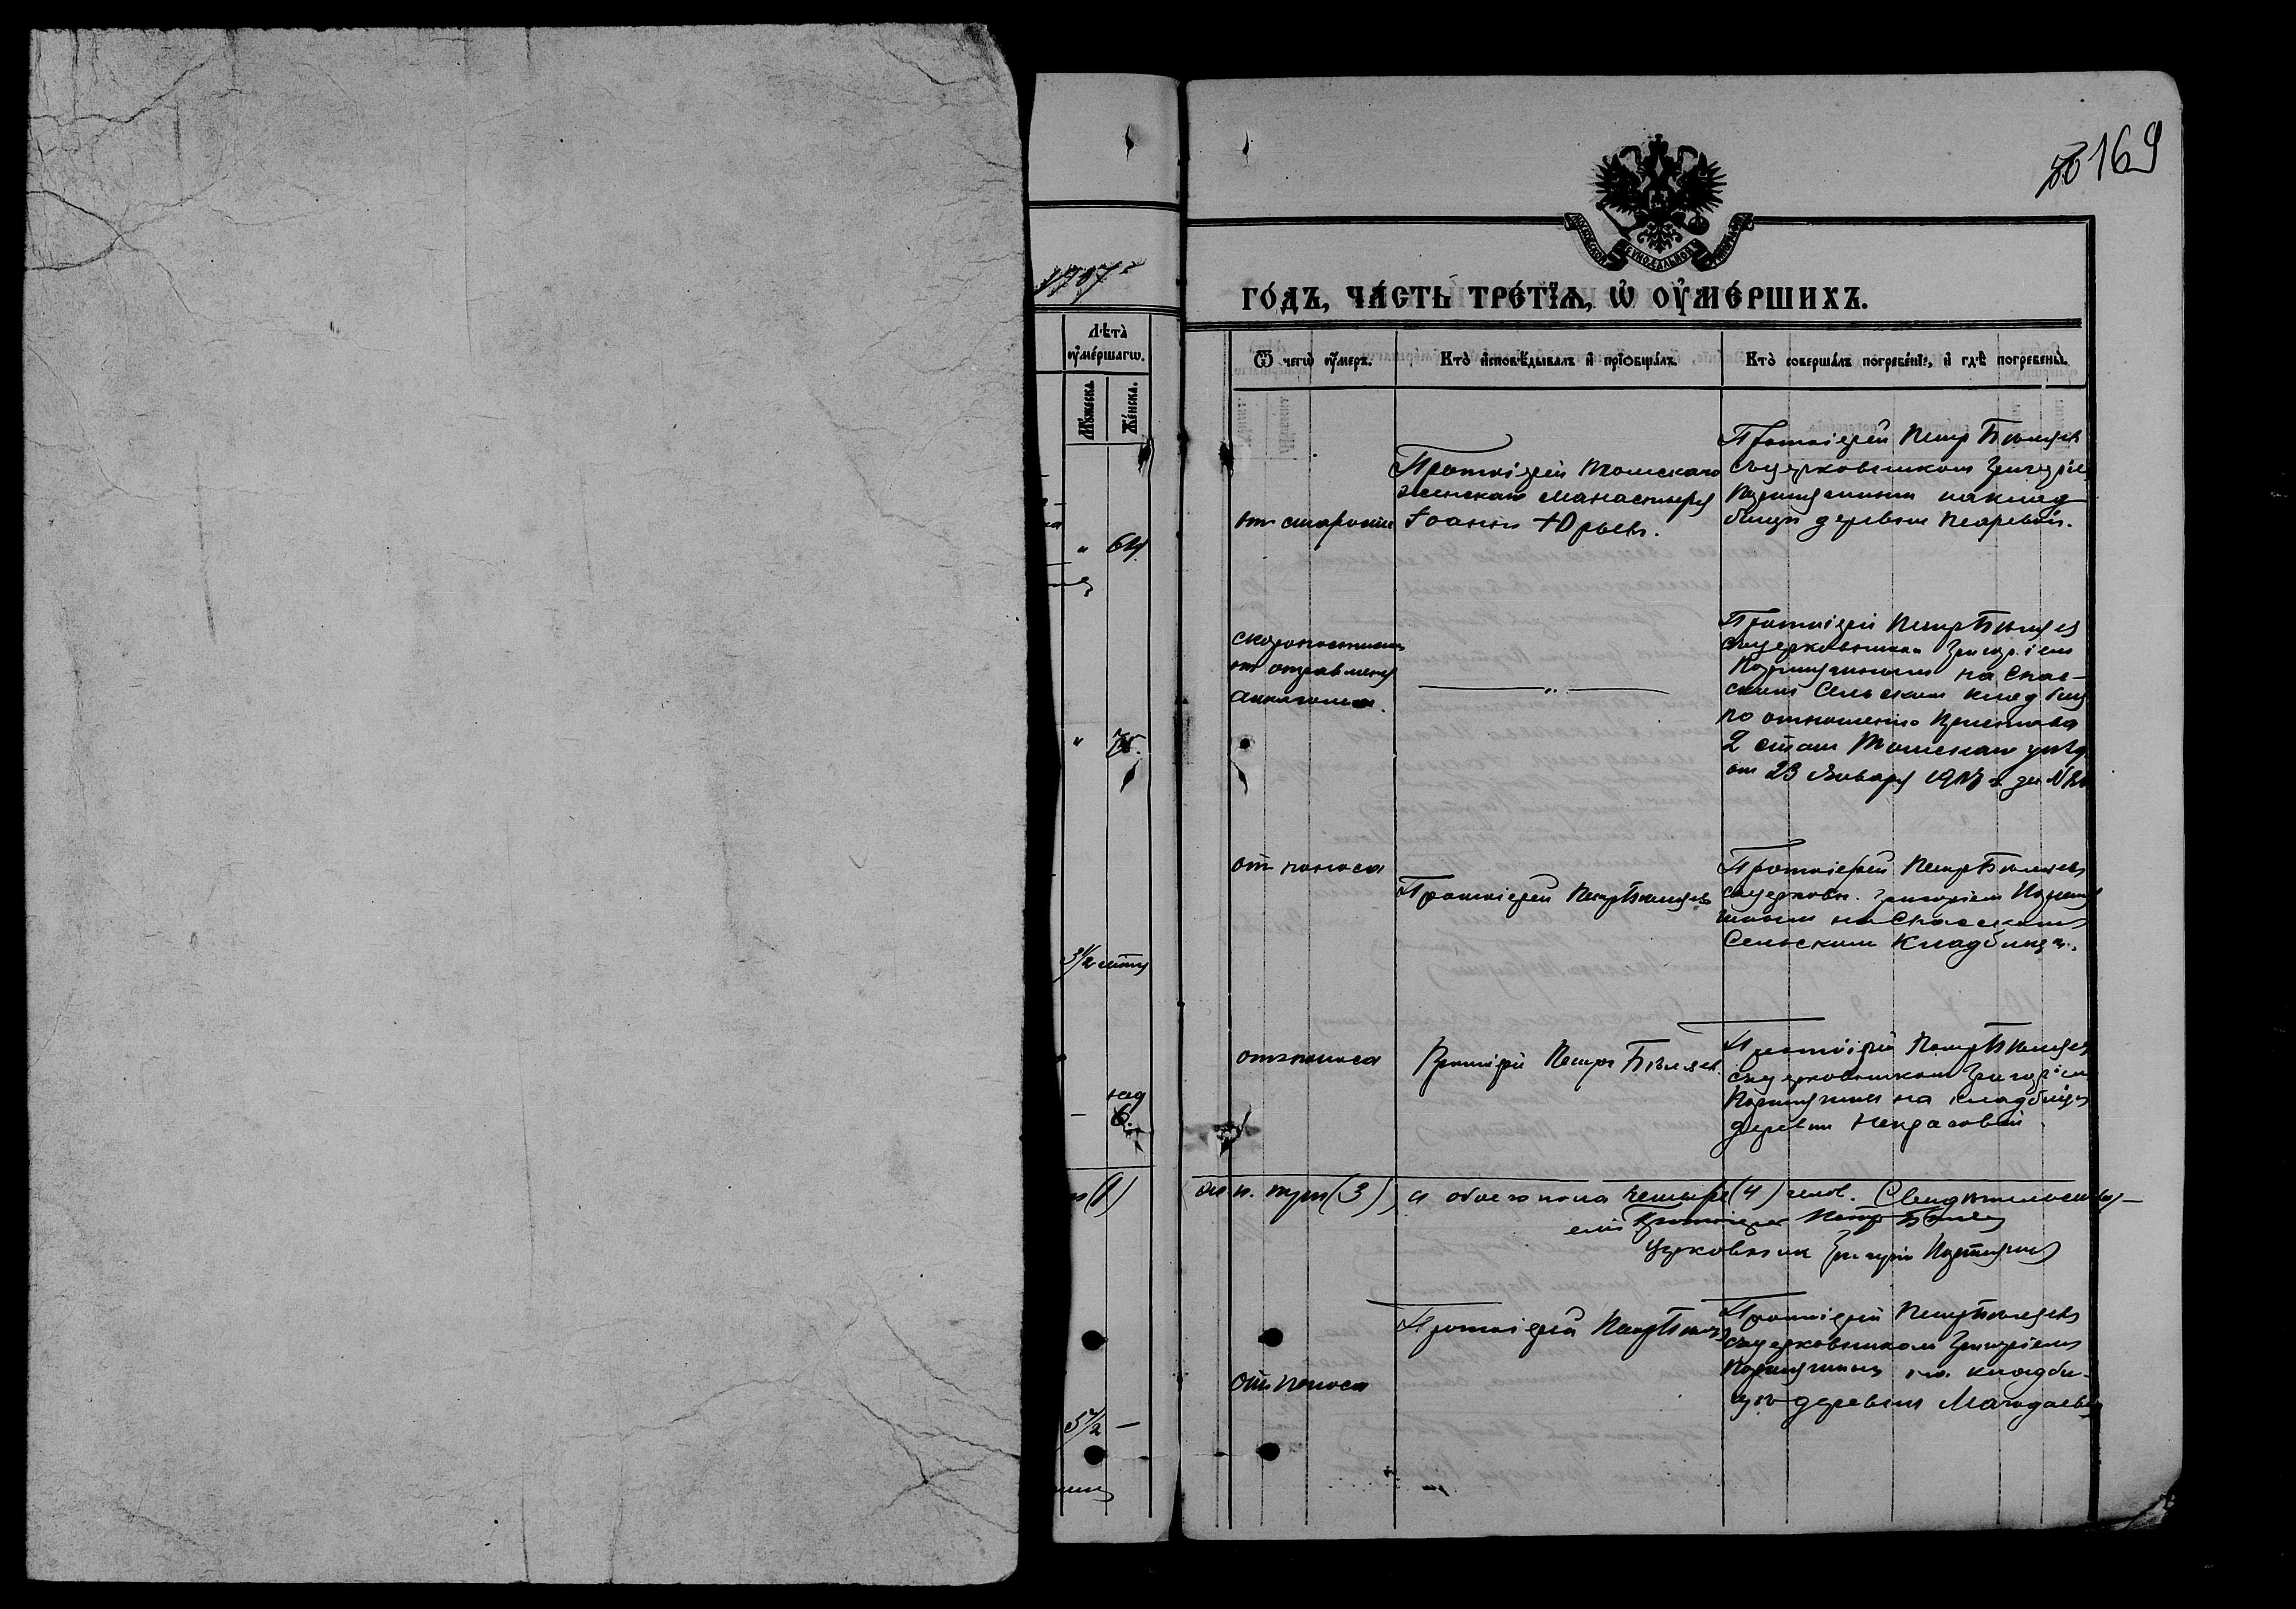 169
1907 г.
ГОДЪ, ЧАСТЬ ТРЕТІЯ, Ѡ ОУМЕРШИХЪ.
МОСКОВСКОЙ СѴНОДАЛЬНОЙ ТИПОГРАФІИ
Лѣта оумершагѡ.
Мꙋжеска. Женска.
Ѿ чегѡ оумеръ.
Кто исповѣдывалъ и пріобщалъ.
Кто совершалъ погребеніе, и гдѣ погребены.
„ 64
от старости
Протоіерей Томскаго
женскаго монастыря
Іоаннъ Юрьевъ.
Протоіерей Петръ Бѣляевъ
съ церковникомъ Григоріемъ
на клад
бищѣ деревни
„ 75.
скоропостижно
от отравленія
алкоголемъ.
— „ —
Протоіерей Петръ Бѣляевъ
съ церковникомъ Григоріемъ
на Спас-
скомъ Сельскомъ кладбищѣ
по отношенію Пристава
2 стана Томскаго уѣзда
от 23 Января 1907 г. за №
3½
от поноса
Протоіерей Петръ Бѣляевъ
Протоіерей Петръ Бѣляевъ
съ церковн. Григоріемъ
на Спасскомъ
Сельскомъ Кладбищѣ.
— нед
6.
от поноса
Протоіерей Петръ Бѣляевъ.
Протоіерей Петръ Бѣляевъ
съ церковникомъ Григоріемъ
на кладбищѣ
деревни Некрасовой
(1) п. три (3) и обоего пола четыре (4) челов. Свидѣтельству-
емъ Протоіерей Петръ Бѣляевъ
Церковникъ Григорій
5½ —
от поноса
Протоіерей Петръ Бѣляевъ
Протоіерей Петръ Бѣляевъ
съ церковникомъ Григоріемъ
на кладби-
щѣ деревни Магадаевой